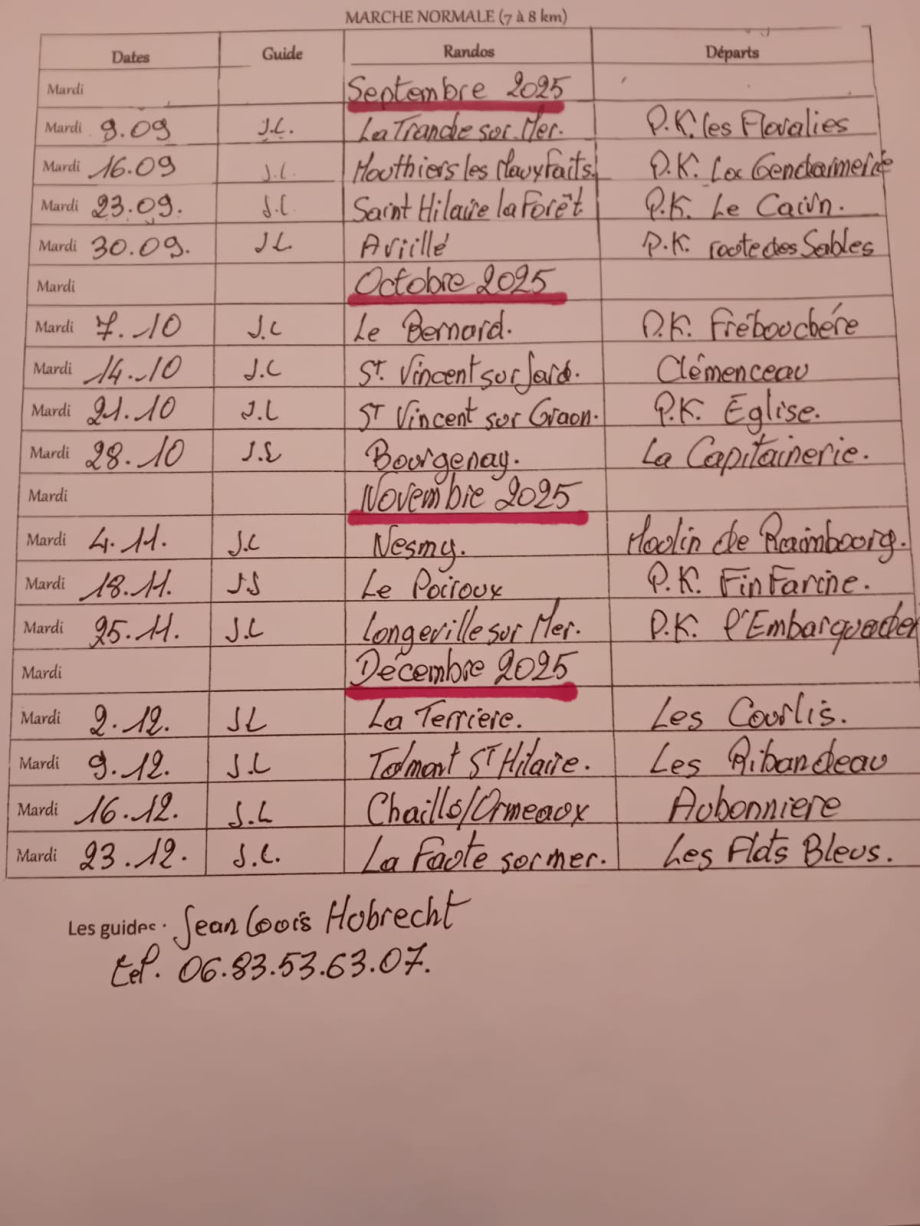 MARCHE NORMALE (7 à 8 km)
Dates Guide Randos Départs
Mardi Septembre 2025
Mardi 9.09 J.L. La Tranche sur Mer. P.K. les Floralies
Mardi 16.09 J.L Mouthiers les Mauxfaits. P.K. La Gendarmerie
Mardi 23.09. J.L Saint Hilaire la Forêt P.K. Le Cairn.
Mardi 30.09. J.L Avrillé P.K. route des Sables
Mardi Octobre 2025
Mardi 7.10 J.L Le Bernard. P.K. Frébouchère
Mardi 14.10 J.L St Vincent sur Jard. Clémenceau
Mardi 21.10 J.L St Vincent sur Graon. P.K. Eglise.
Mardi 28.10 J.L Bourgenay. La Capitainerie.
Mardi Novembre 2025
Mardi 4.11. J.L Nesmy. Moulin de Raimbourg.
Mardi 18.11. Le Poiroux P.K. Fin Farine.
Mardi 25.11. J.L Longeville sur Mer. P.K. l'Embarquadèr
Mardi Décembre 2025
Mardi 2.12. JL La Terriere. Les Courlis.
Mardi 9.12. J.L Talmont St Hilaire. Les Ribandeau
Mardi 16.12. J.L Chaillé/Ormeaux Aubonniere
Mardi 23.12. J.L. La Faute sur mer. Les Flots Bleus.
Les guides : Jean Louis Hobrecht
tel. 06.83.53.63.07.